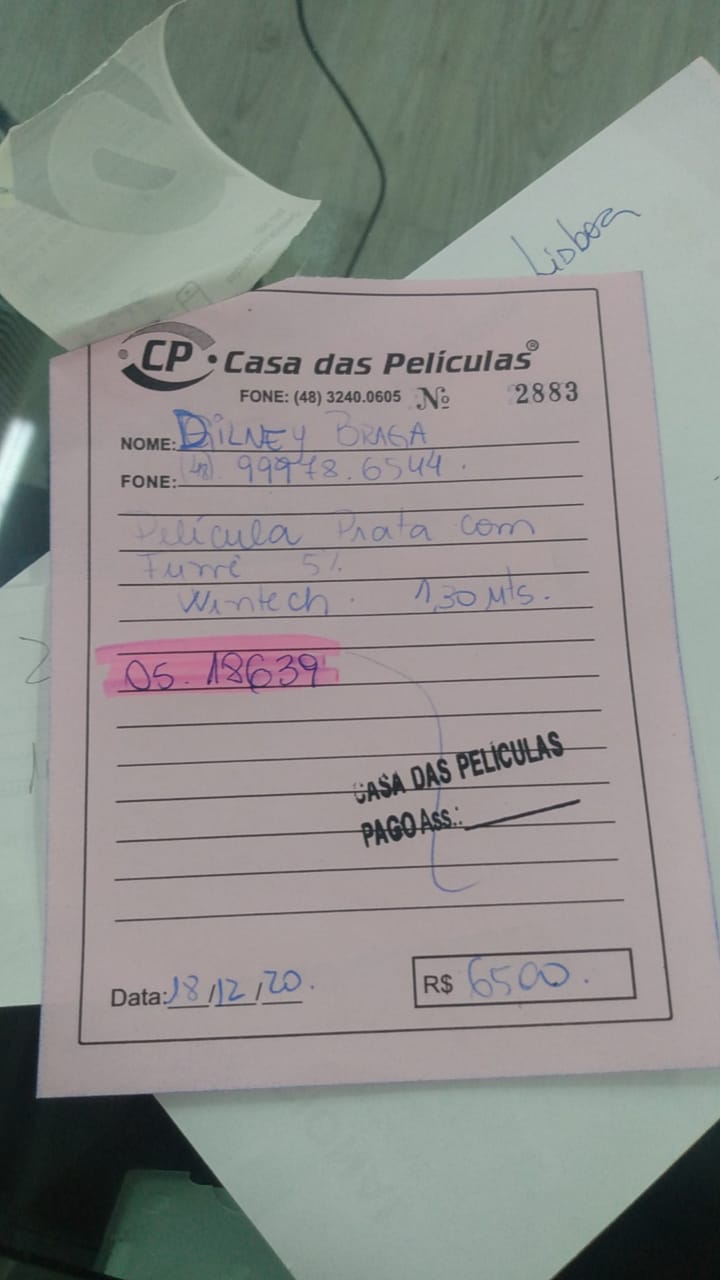 Lisboa
CP Casa das Películas®
FONE: (48) 3240.0605 Nº 2883
NOME: DILNEY BRAGA
FONE: (48). 99978.6544.
Película Prata com
Fumê 5%
Wintech. 1,30 Mts.
OS. 18639
CASA DAS PELÍCULAS
PAGO Ass.:
Data: 18/12/20.
R$ 6500.